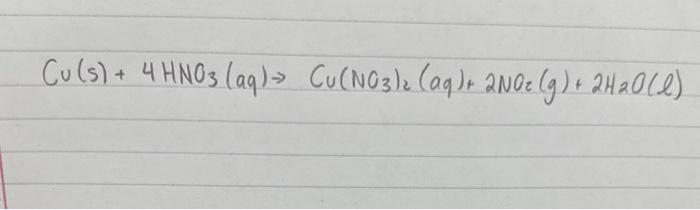 Cu(s) + 4HNO3(aq) → Cu(NO3)2(aq) + 2NO2(g) + 2H2O(l)